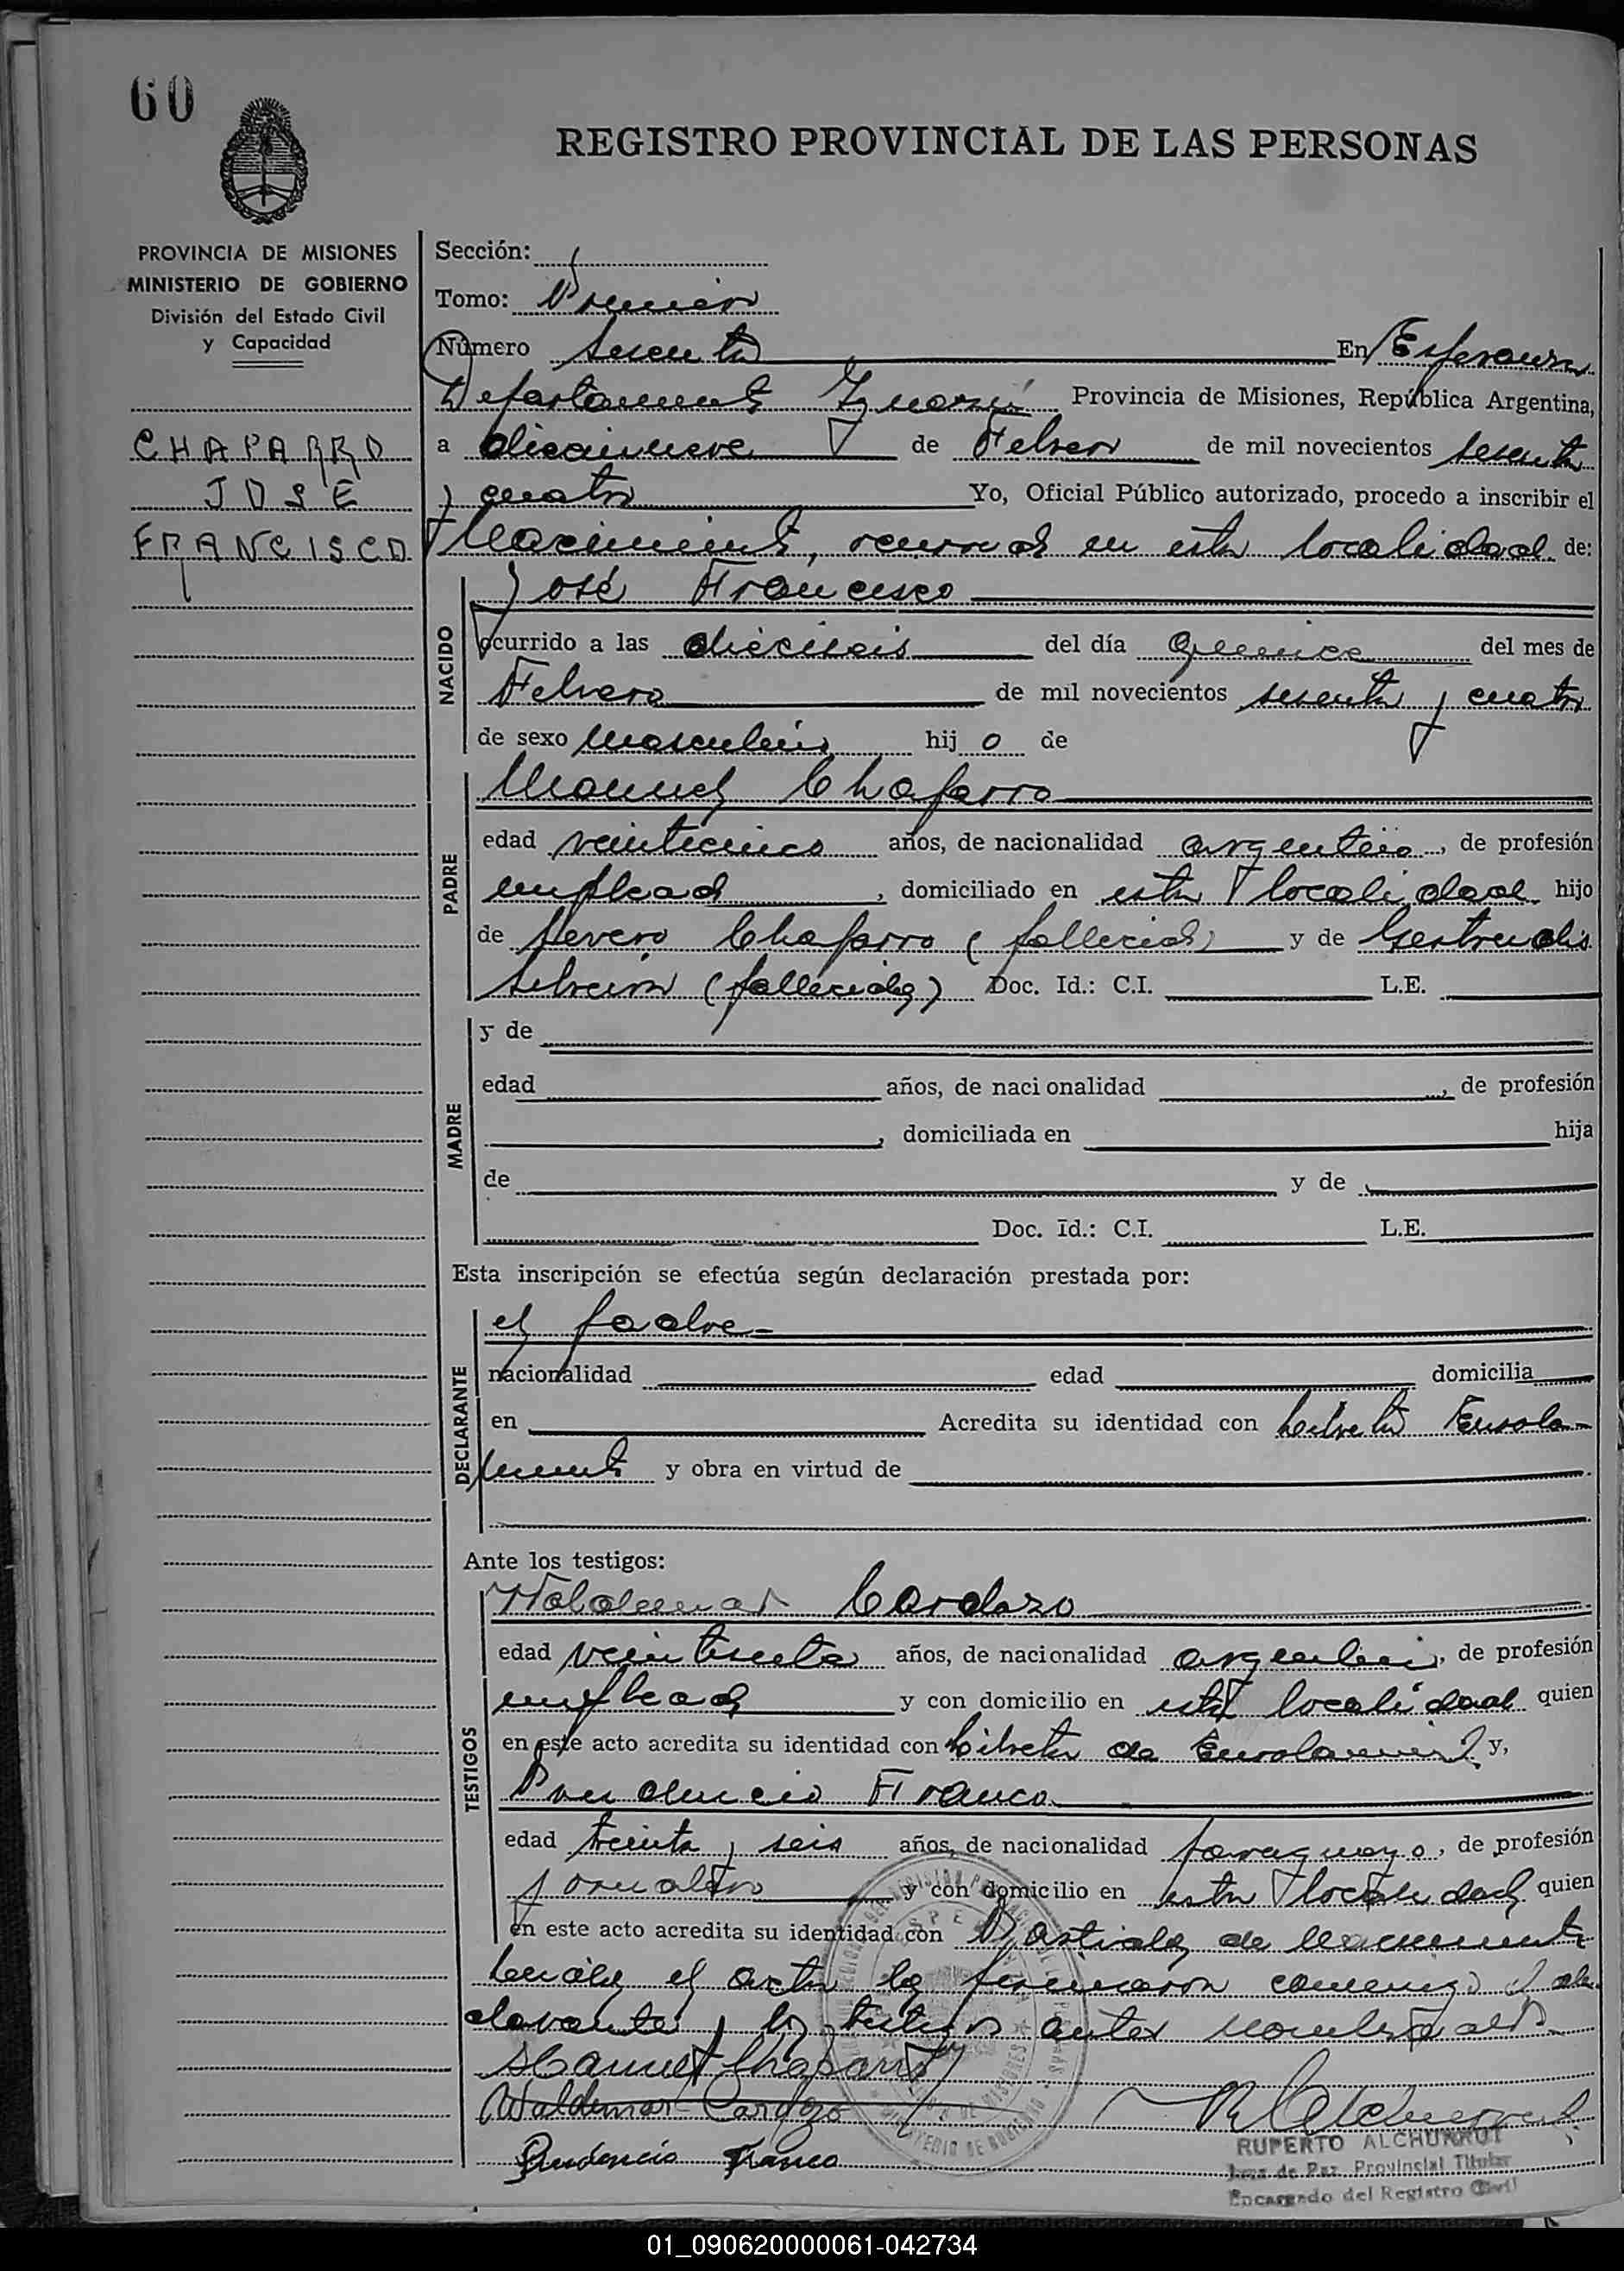 60
REGISTRO PROVINCIAL DE LAS PERSONAS
PROVINCIA DE MISIONES
MINISTERIO DE GOBIERNO
División del Estado Civil
y Capacidad
CHAPARRO
JOSE
FRANCISCO
Sección:
Tomo: Primero
Número Sesenta En Esperanza
Departamento Iguazú Provincia de Misiones, República Argentina,
a diecinueve de Febrero de mil novecientos sesenta
y cuatro Yo, Oficial Público autorizado, procedo a inscribir el
Nacimiento, ocurrido en esta localidad de:
NACIDO
José Francisco
ocurrido a las dieciseis del día Quince del mes de
Febrero de mil novecientos sesenta y cuatro
de sexo masculino hij o de
PADRE
Manuel Chaparro
edad veinticinco años, de nacionalidad argentino, de profesión
empleado, domiciliado en esta localidad hijo
de Severo Chaparro (fallecido) y de Gertrudis
(fallecida) Doc. Id.: C.I. L.E.
MADRE
y de
edad años, de naci onalidad , de profesión
, domiciliada en hija
de y de
Doc. Id.: C.I. L.E.
Esta inscripción se efectúa según declaración prestada por:
DECLARANTE
el padre
nacionalidad edad domicilia
en Acredita su identidad con Libreta Enrola
miento y obra en virtud de
Ante los testigos:
TESTIGOS
Waldemar Cardozo
edad años, de nacionalidad argentino, de profesión
empleado y con domicilio en esta localidad quien
en este acto acredita su identidad con Libreta de Enrolamiento y,
Prudencio Franco
edad treinta y seis años, de nacionalidad paraguayo, de profesión
jornalero y con domicilio en esta localidad quien
en este acto acredita su identidad con Partida de Nacimiento
Leída el acta la firmaron conmigo el de
clarante y los testigos antes nombrados
Manuel Chaparro
Waldemar Cardozo
Prudencio Franco
RUPERTO ALCHURRUT
Juez de Paz Provincial Titular
Encargado del Registro Civil
01_090620000061-042734